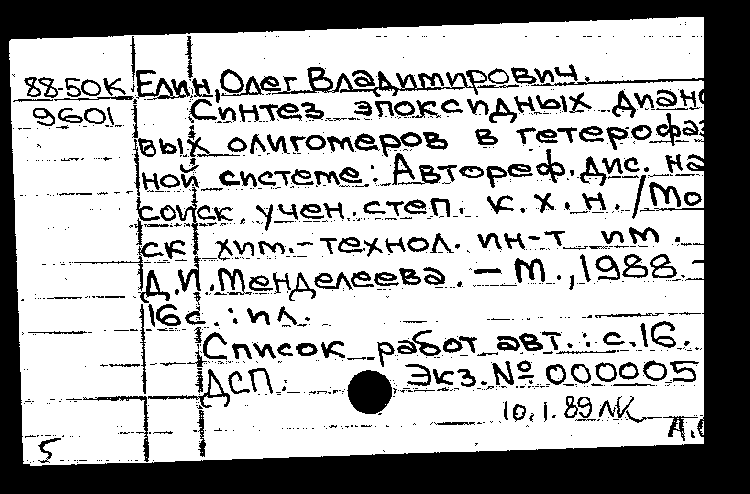 88-50К Елин, Олег Владимирович.
9601 Синтез эпоксидных диано
вых олигомеров в гетерофаз
ной системе: Автореф. дис. на
соиск. учен. степ. к.х.н. /Мо
ск хим.-технол. ин-т им.
Д.И. Менделеева. — М., 1988. -
16с.: ил.
Список работ авт.: с.16.
ДСП. Экз. № 000005
10.1.89
5 А.